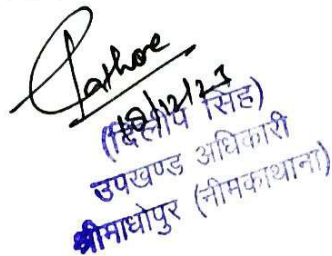 Rathore
(दिलीप सिंह)
उपखण्ड अधिकारी
श्रीमाधोपुर (नीमकाथाना)